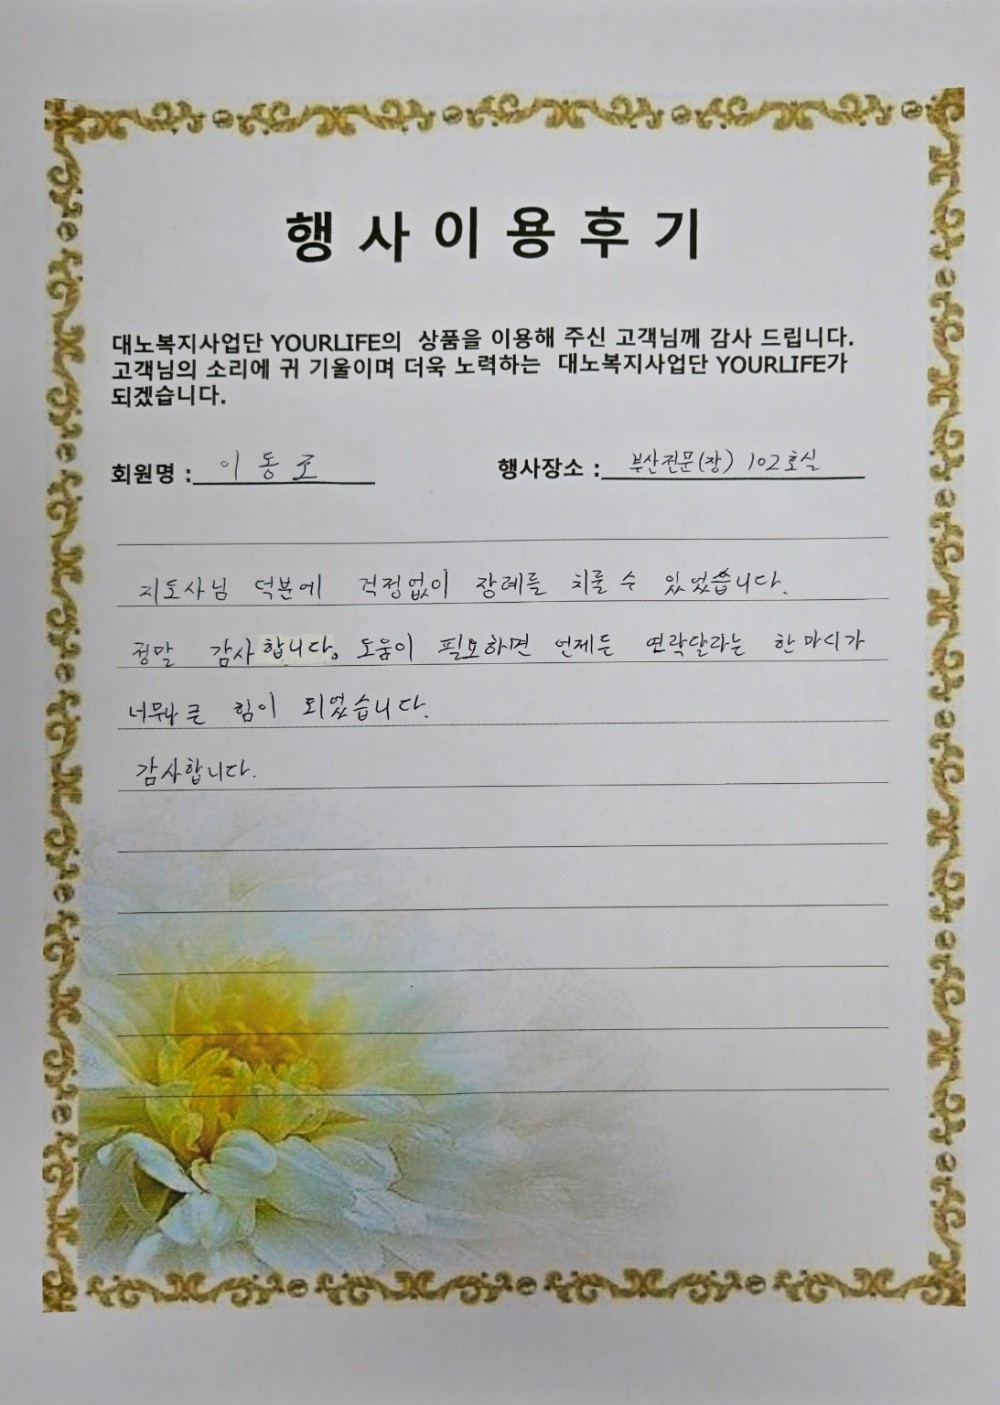 행사이용후기
대노복지사업단 YOURLIFE의 상품을 이용해 주신 고객님께 감사 드립니다.
고객님의 소리에 귀 기울이며 더욱 노력하는 대노복지사업단 YOURLIFE가
되겠습니다.
회원명 : 이동조 행사장소 : 부산전문(장) 102호실
지도사님 덕분에 걱정없이 장례를 치룰 수 있었습니다.
정말 감사합니다. 도움이 필요하면 언제든 연락달라는 한마디가
너무나 큰 힘이 되었습니다.
감사합니다.